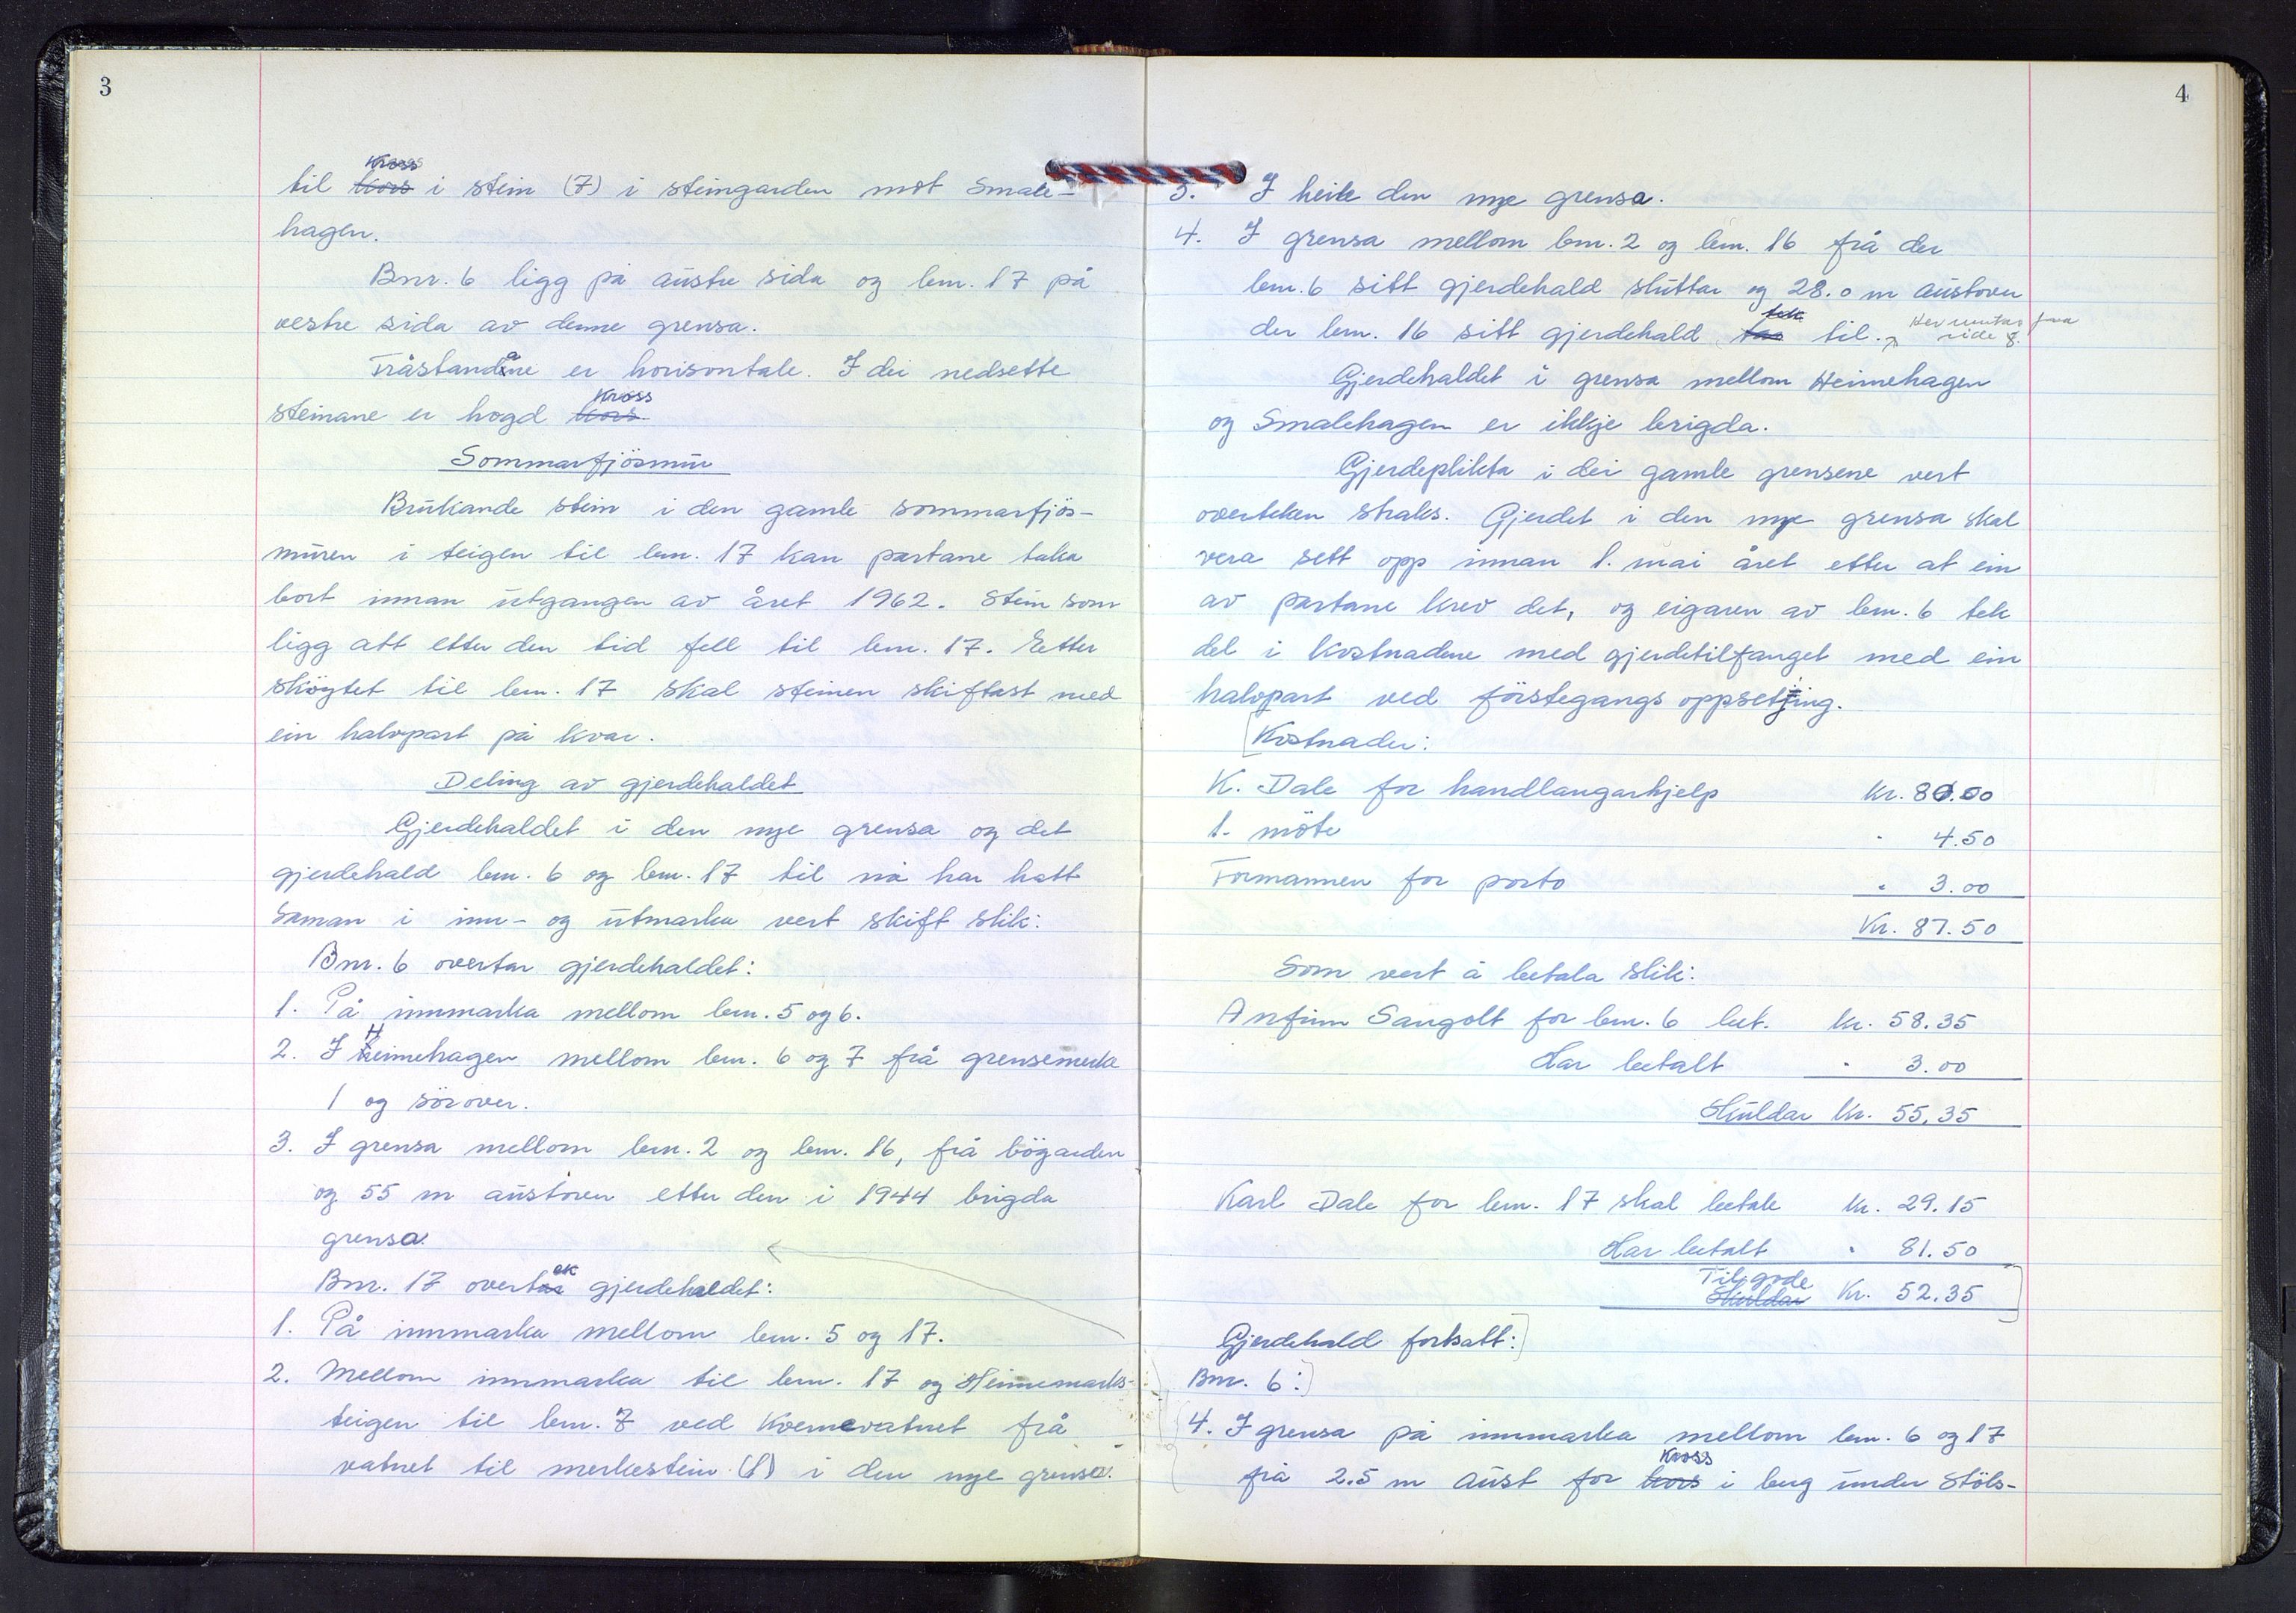 3
til ~~kors~~ Kross i stein (7) i steingarden mot Smale-
hagen.
Bnr. 6 ligg på austre sida og bnr. 17 på
vestre sida av denne grensa.
Fråstandane er horisontale. I dei nedsette
steinane er hogd ~~kors~~ Kross.
Sommarfjösmur
Brukande stein i den gamle sommarfjös-
muren i teigen til bnr. 17 kan partane taka
bort innan utgangen av året 1962. Stein som
ligg att etter den tid fell til bnr. 17. Etter
skøytet til bnr. 17 skal steinen skiftast med
ein halvpart på kvar.
Deling av gjerdehaldet
Gjerdehaldet i den nye grensa og det
gjerdehald bnr. 6 og bnr. 17 til nå har hatt
saman i inn- og utmarka vert skift slik:
Bnr. 6 overtar gjerdehaldet:
1. På innmarka mellom bnr. 5 og 6.
2. I Heimehagen mellom bnr. 6 og 7 frå grensemerke
1 og sörover.
3. I grensa mellom bnr. 2 og bnr. 16, frå bögarden
og 55 m austover etter den i 1944 brigda
grensa.
Bnr. 17 overt~~ar~~ek gjerdehaldet:
1. På innmarka mellom bnr. 5 og 17.
2. Mellom innmarka til bnr. 17 og Heimemarks-
teigen til bnr. 7 ved Kvernevatnet frå
vatnet til merkestein (1) i den nye grensa.
4
3. I heile den nye grensa.
4. I grensa mellom bnr. 2 og bnr. 16 frå der
bnr. 6 sitt gjerdehald sluttar og 28.0 m austover
der bnr. 16 sitt gjerdehald ~~tar~~ tek til. Her inntas fra side 8.
Gjerdehaldet i grensa mellom Heimehagen
og Smalehagen er ikkje brigda.
Gjerdeplikta i dei gamle grensene vert
overteken straks. Gjerdet i den nye grensa skal
vera sett opp innan 1. mai året etter at ein
av partane krev det, og eigaren av bnr. 6 tek
del i kostnadene med gjerdetilfanget med ein
halvpart ved förstegangs oppsetjing.
[Kostnader:
K. Dale for handlangarhjelp Kr. 80.00
1. möte " 4.50
Formannen for porto " 3.00
Kr. 87.50
Som vert å betala slik:
Anfinn Sangolt for bnr. 6 bet. kr. 58.35
Har betalt " 3.00
Skuldar kr. 55.35
Karl Dale for bnr. 17 skal betale kr. 29.15
Har betalt " 81.50
~~Skuldar~~ Tilgode Kr. 52.35]
Gjerdehald fortsatt:]
Bnr. 6:)
4. I grensa på innmarka mellom bnr. 6 og 17
frå 2.5 m aust for ~~kors~~ Kross i berg under Stöls-